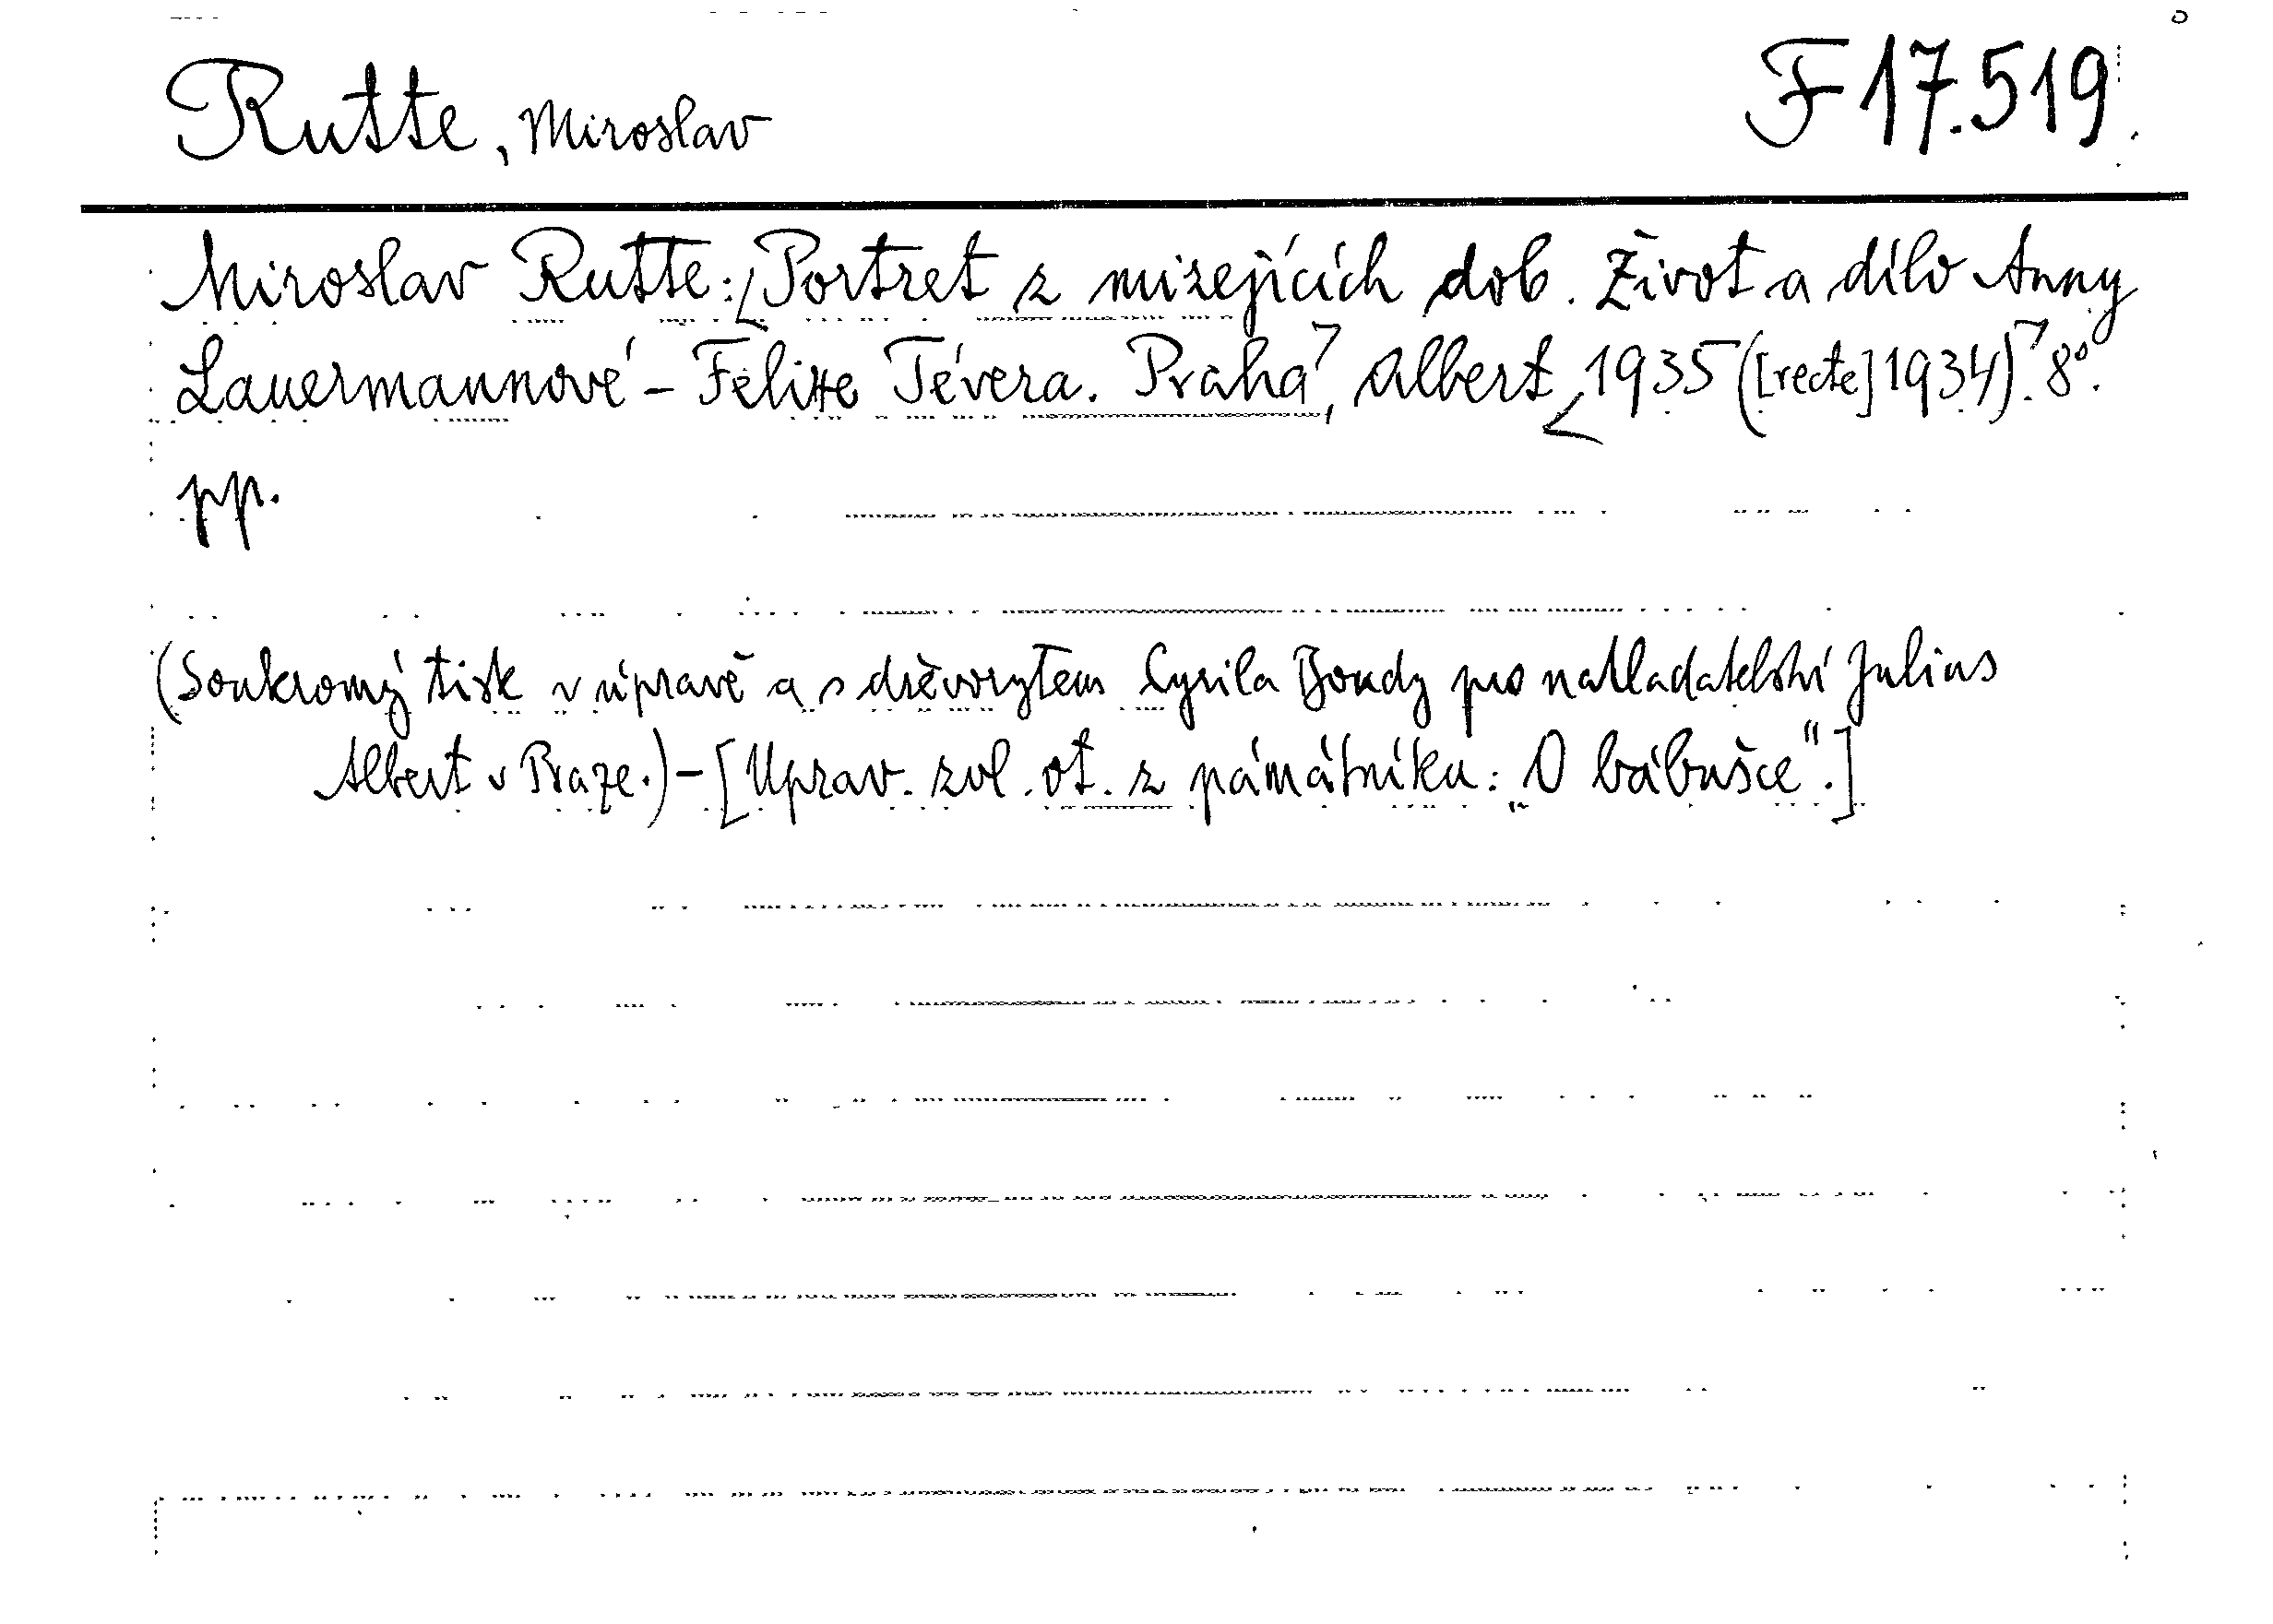 Rutte, Miroslav F 17.519.
Miroslav Rutte: [Portret z mizejících dob. Život a dílo Anny
Lauermannové - Felixe Tévera. Praha], Albert [1935 ([recte] 1934)]. 8°.
pp.
(Soukromý tisk v úpravě a s dřevorytem Cyrila Boudy pro nakladatelství Julius
Albert v Praze.) - [Uprav. zvl. ot. z pámátníku: „O bábušce“.]